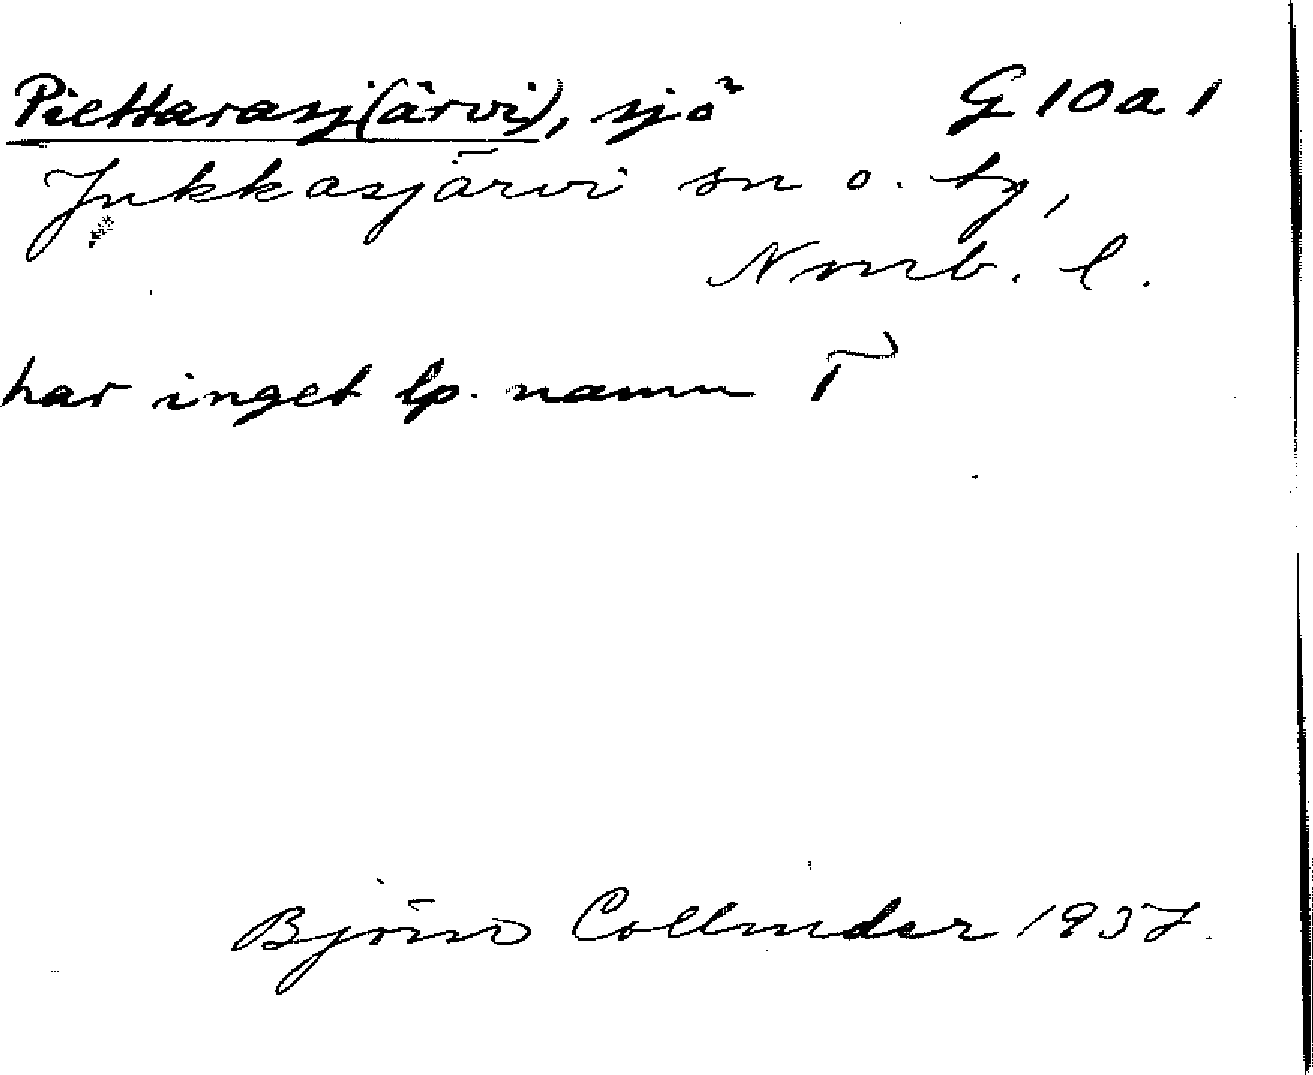 Piettarasj(ärvi), sjö G 10 a 1
Jukkasjärvi sn o. tg,
Norrb. l.
har inget lp. namn T
Björn Collinder 1937.